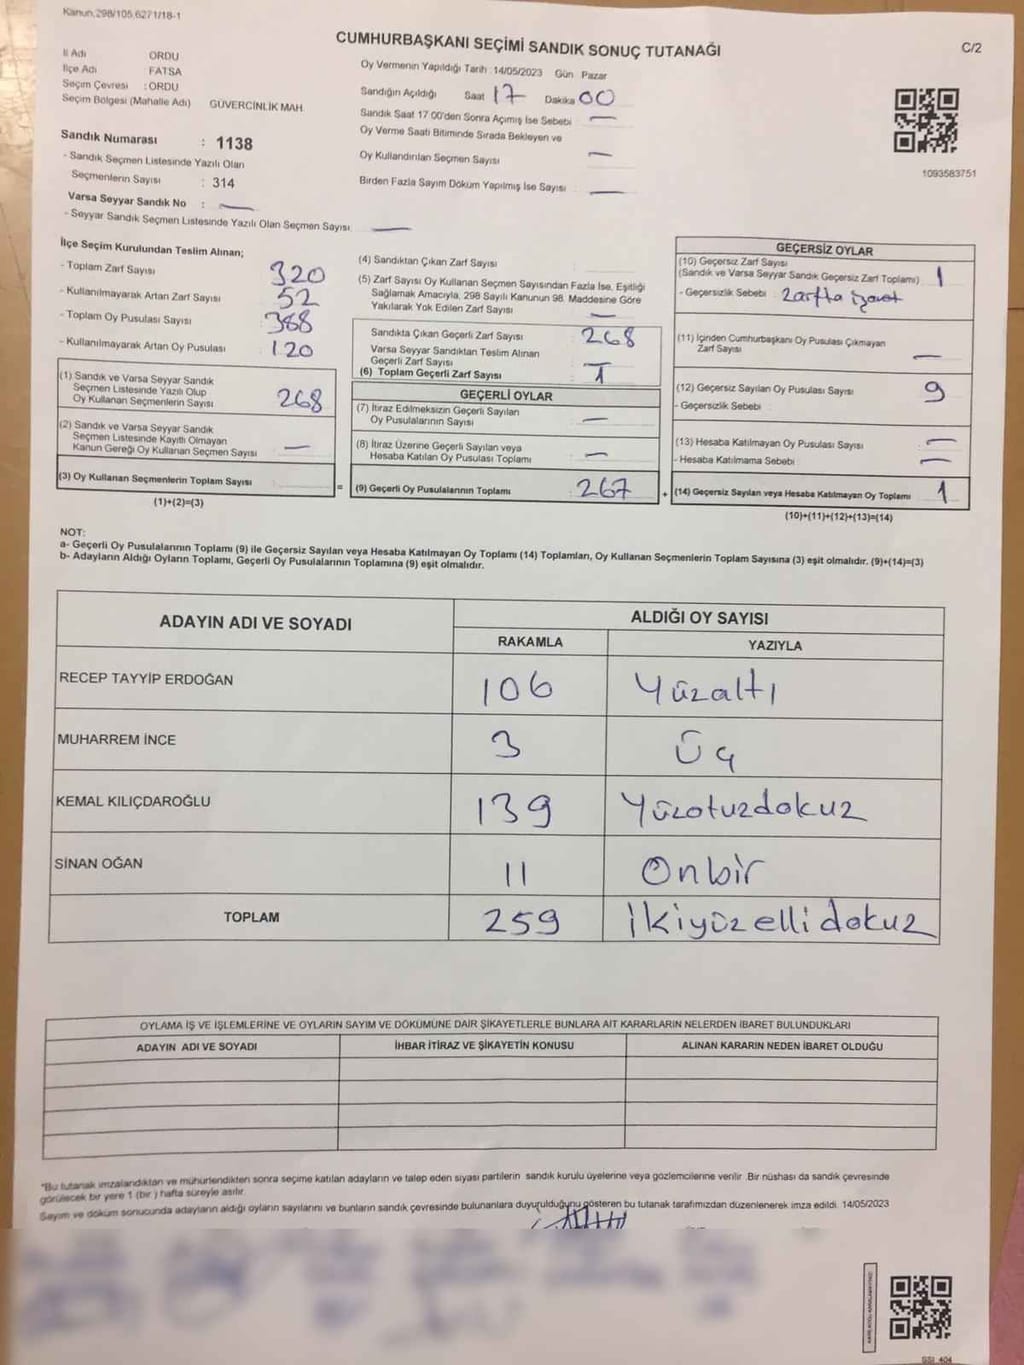 Kanun,298/105,6271/18-1
CUMHURBAŞKANI SEÇİMİ SANDIK SONUÇ TUTANAĞI
C/2
İl Adı ORDU
İlçe Adı FATSA
Seçim Çevresi : ORDU
Seçim Bölgesi (Mahalle Adı) GÜVERCİNLİK MAH.
Sandık Numarası : 1138
- Sandık Seçmen Listesinde Yazılı Olan
Seçmenlerin Sayısı : 314
Varsa Seyyar Sandık No : —
- Seyyar Sandık Seçmen Listesinde Yazılı Olan Seçmen Sayısı —
Oy Vermenin Yapıldığı Tarih :14/05/2023 Gün Pazar
Sandığın Açıldığı Saat 17 Dakika 00
Sandık Saat 17:00'den Sonra Açımış İse Sebebi —
Oy Verme Saati Bitiminde Sırada Bekleyen ve
Oy Kullandırılan Seçmen Sayısı —
Birden Fazla Sayım Döküm Yapılmış İse Sayısı —
1093583751
İlçe Seçim Kurulundan Teslim Alınan;
- Toplam Zarf Sayısı 320
- Kullanılmayarak Artan Zarf Sayısı 52
- Toplam Oy Pusulası Sayısı 388
- Kullanılmayarak Artan Oy Pusulası 120
(1) Sandık ve Varsa Seyyar Sandık
Seçmen Listesinde Yazılı Olup
Oy Kullanan Seçmenlerin Sayısı 268
(2) Sandık ve Varsa Seyyar Sandık
Seçmen Listesinde Kayıtlı Olmayan
Kanun Gereği Oy Kullanan Seçmen Sayısı —
(3) Oy Kullanan Seçmenlerin Toplam Sayısı
(1)+(2)=(3)
=
(4) Sandıktan Çıkan Zarf Sayısı
(5) Zarf Sayısı Oy Kullanan Seçmen Sayısından Fazla İse, Eşitliği
Sağlamak Amacıyla, 298 Sayılı Kanunun 98. Maddesine Göre
Yakılarak Yok Edilen Zarf Sayısı —
Sandıkta Çıkan Geçerli Zarf Sayısı 268
Varsa Seyyar Sandıktan Teslim Alınan
Geçerli Zarf Sayısı
(6) Toplam Geçerli Zarf Sayısı
GEÇERLİ OYLAR
(7) İtiraz Edilmeksizin Geçerli Sayılan
Oy Pusulalarının Sayısı —
(8) İtiraz Üzerine Geçerli Sayılan veya
Hesaba Katılan Oy Pusulası Toplamı —
(9) Geçerli Oy Pusulalarının Toplamı 267
+
GEÇERSİZ OYLAR
(10) Geçersiz Zarf Sayısı
(Sandık ve Varsa Seyyar Sandık Geçersiz Zarf Toplamı) 1
- Geçersizlik Sebebi Zarfta işaret
(11) İçinden Cumhurbaşkanı Oy Pusulası Çıkmayan
Zarf Sayısı —
(12) Geçersiz Sayılan Oy Pusulası Sayısı 9
- Geçersizlik Sebebi
(13) Hesaba Katılmayan Oy Pusulası Sayısı —
- Hesaba Katılmama Sebebi —
(14) Geçersiz Sayılan veya Hesaba Katılmayan Oy Toplamı 1
(10)+(11)+(12)+(13)=(14)
NOT:
a- Geçerli Oy Pusulalarının Toplamı (9) ile Geçersiz Sayılan veya Hesaba Katılmayan Oy Toplamı (14) Toplamları, Oy Kullanan Seçmenlerin Toplam Sayısına (3) eşit olmalıdır. (9)+(14)=(3)
b- Adayların Aldığı Oyların Toplamı, Geçerli Oy Pusulalarının Toplamına (9) eşit olmalıdır.
ADAYIN ADI VE SOYADI ALDIĞI OY SAYISI
RAKAMLA YAZIYLA
RECEP TAYYİP ERDOĞAN 106 Yüzaltı
MUHARREM İNCE 3 Üç
KEMAL KILIÇDAROĞLU 139 Yüzotuzdokuz
SİNAN OĞAN 11 Onbir
TOPLAM 259 İkiyüzellidokuz
OYLAMA İŞ VE İŞLEMLERİNE VE OYLARIN SAYIM VE DÖKÜMÜNE DAİR ŞİKAYETLERLE BUNLARA AİT KARARLARIN NELERDEN İBARET BULUNDUKLARI
ADAYIN ADI VE SOYADI İHBAR İTİRAZ VE ŞİKAYETİN KONUSU ALINAN KARARIN NEDEN İBARET OLDUĞU
*Bu tutanak imzalandıktan ve mühürlendikten sonra seçime katılan adayların ve talep eden siyasi partilerin sandık kurulu üyelerine veya gözlemcilerine verilir. Bir nüshası da sandık çevresinde
görülecek bir yere 1 (bir ) hafta süreyle asılır.
Sayım ve döküm sonucunda adayların aldığı oyların sayılarını ve bunların sandık çevresinde bulunanlara duyurulduğunu gösteren bu tutanak tarafımızdan düzenlenerek imza edildi. 14/05/2023
SSİ_404